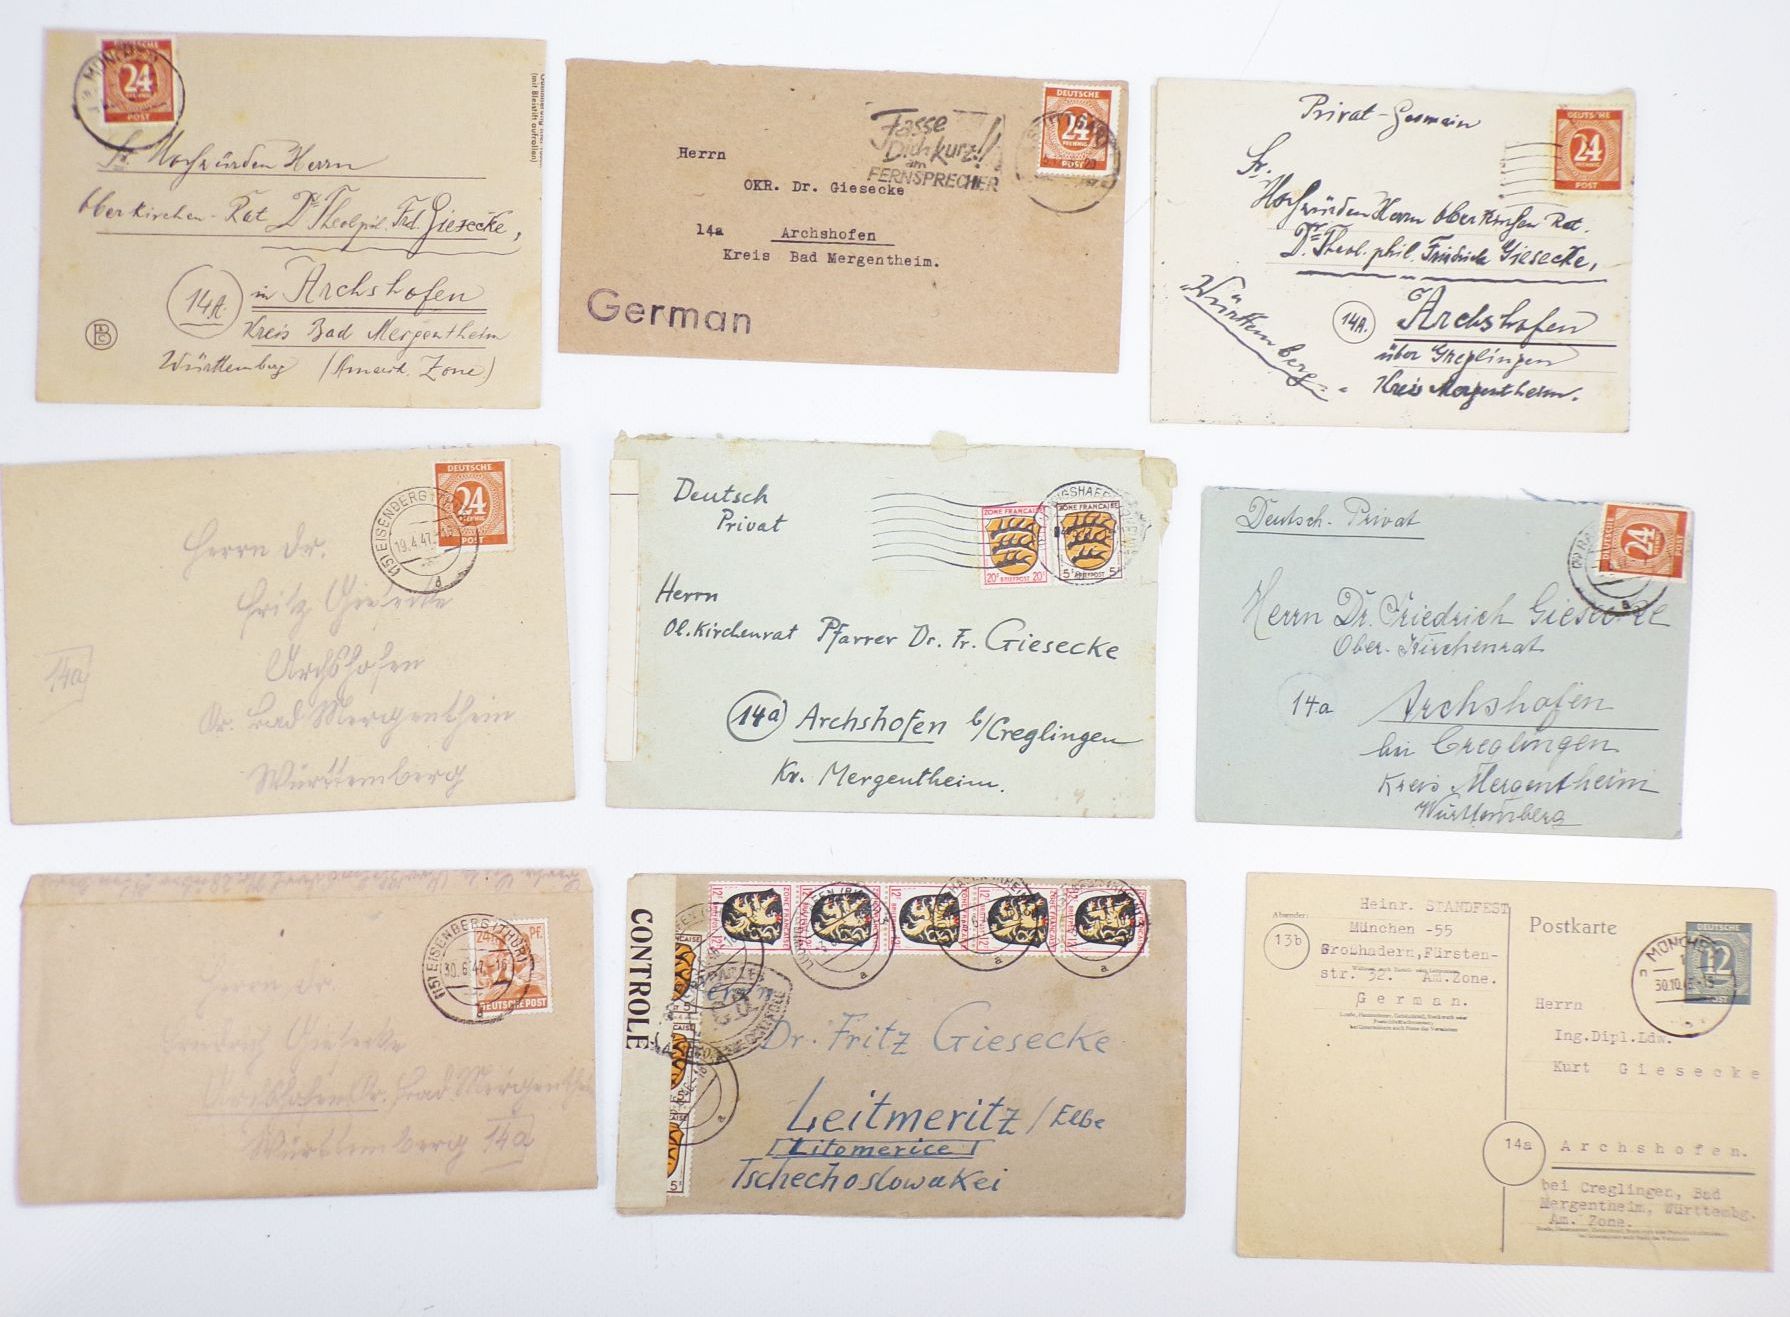 MÜNCHEN
24
POST
Sr. Hochwürden Herrn
Oberkirchen-Rat Dr. Theol. phil. Frd. Giesecke,
14A. in Archshofen
Kreis Bad Mergentheim
Württemberg (Amerik. Zone)
(mit Bleistift aufrollen)
Fasse
Dich kurz!
am
FERNSPRECHER
DEUTSCHE
24
PFENNIG
POST
Herrn
OKR. Dr. Giesecke
14a Archshofen
Kreis Bad Mergentheim.
German
Privat-Germain
DEUTSCHE
24
PFENNIG
POST
Sr.
Hochwürden Herrn Oberkirchen Rat.
Dr. Theol. phil. Friedrich Giesecke,
Württemberg
14A. Archshofen
über Greglingen
Kreis Mergentheim.
DEUTSCHE
24
POST
(15) EISENBERG (TH
19.4.47
Herrn Dr.
Fritz Giesecke
14a
Archshofen
Kr. Bad Mergentheim
Württemberg
Deutsch
Privat
ZONE FRANÇAISE
20F BRIEFPOST 20F
ZONE FRANÇAISE
5F BRIEFPOST 5F
Herrn
Ol. Kirchenrat Pfarrer Dr. Fr. Giesecke
14a) Archshofen b/Creglingen
Kr. Mergentheim.
Deutsch-Privat
DEUTSCHE
24
POST
Herrn Dr. Friedrich Giesecke
Ober-Kirchenrat
14a Archshofen
bei Creglingen
Kreis Mergentheim
Württemberg
(15) EISENBERG (THÜR)
30.6.47.-16
24 PF.
DEUTSCHE POST
Herrn Dr.
Friedrich Giesecke
Archshofen Kr. Bad Mergentheim
Württemberg 14a
CONTROLE
12F ZONE FRANÇAISE
Herrn
Dr. Fritz Giesecke
Leitmeritz/Elbe
Litomerice
Tschechoslowakei
Absender:
Heinr. STANDFEST
13b München -55
Großhadern, Fürsten-
str. 32. Am.Zone.
German.
Postkarte
12
POST
MÜNCHEN
30.10.
Herrn
Ing.Dipl.Ldw.
Kurt Giesecke
14a Archshofen.
bei Creglingen, Bad
Mergentheim, Württembg.
Am. Zone.